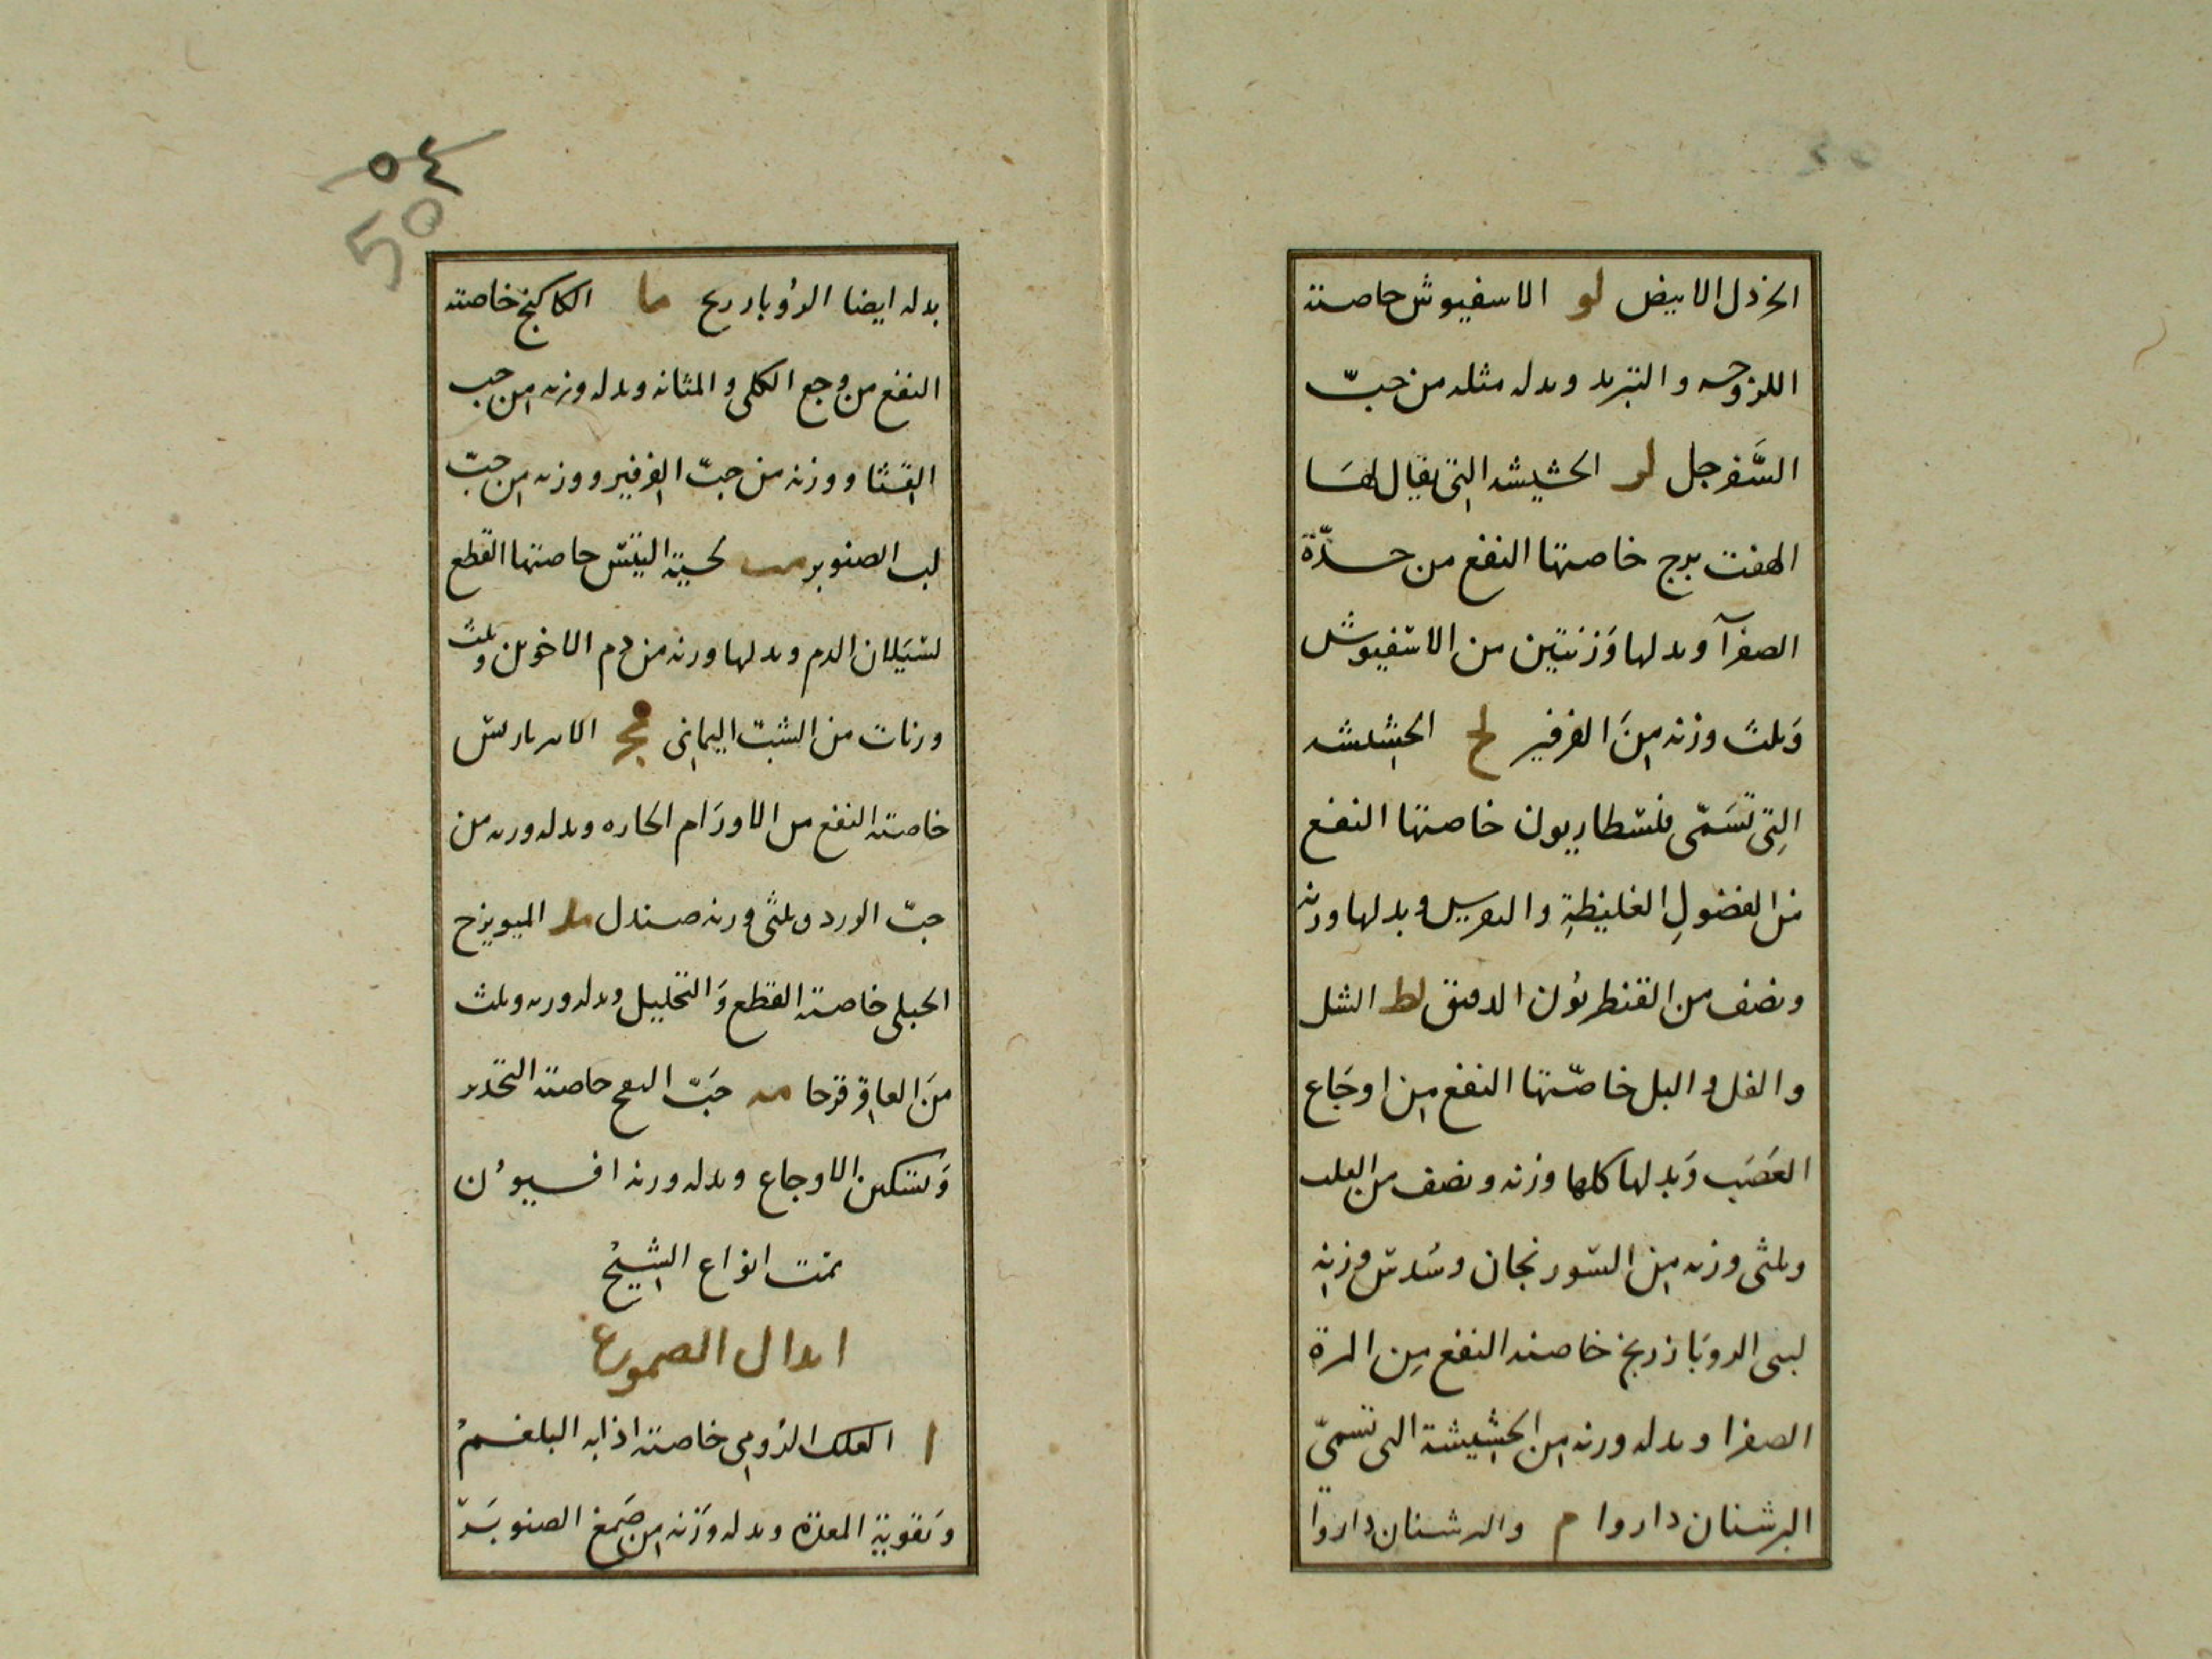 الخردل الابيض لو الاسفيوش خاصته
اللزوجه والتبريد وبدله مثله من حبّ
السَّفرجل لز الحشيشه التى يقال لهَا
الهفت برج خاصتها النفع من حدّة
الصفرآ وبدلها وَزنتين من الاسفيوش
وَثلث وزنه مِنَ الفرفير لح الحشيشه
التِى تسَمّى فلسطاريون خاصتها النفع
من الفضولِ الغليظةِ والنقريس وبدلها وزنه
ونصف من القنطريُون الدقيق لط الشل
والفل والبل خاصّتها النفع مِن اوجَاع
العَصَب وَبدلها كلها وزنه ونصف من
وثلثى وزنه مِن السورنجان وسُدس وزنِه
لبنى الدوبَازريخ خاصته النفع مِن المرة
الصفرا وبدله وزنه مِن الحشِيشة التى تسمىّ
البرشنان داروا م والبرشنان داروا
٥٤
50
بدله ايضا الدُوبازريح ما الكاكنج خاصته
النفع من وجع الكلى والمثانه وبدله وزنه مِن حب
القثا ووزنه من حبّ الفرفير ووزنه مِن حبّ
لب الصنوبر مب لحية التيس خاصتها القطع
لسَيَلان الدم وبدلها وزنه من دم الاخوين وثلث
وزنات من الشبّ اليمانِى مج الامبرباريس
خاصته النفع من الاورَام الحاره وبدله وزنه من
حبّ الورد وثلثى وزنه صندل مد الميويزج
الجبلى خاصته القطع وَالتحليل وبدله وزنه وثلث
منَ العاقِر قرحا مه حَبّ خاصته التخدير
وَتسكين الاوجاع وبدله وزنه افسيوُن
تمت انواع الشِيحْ
ابدال الصموغ
ا العلك الرُومِى خاصته اذابه البلغمْ
وَتقويةِ المعدة وبدله وزنه مِن صَمغ الصنوبَر